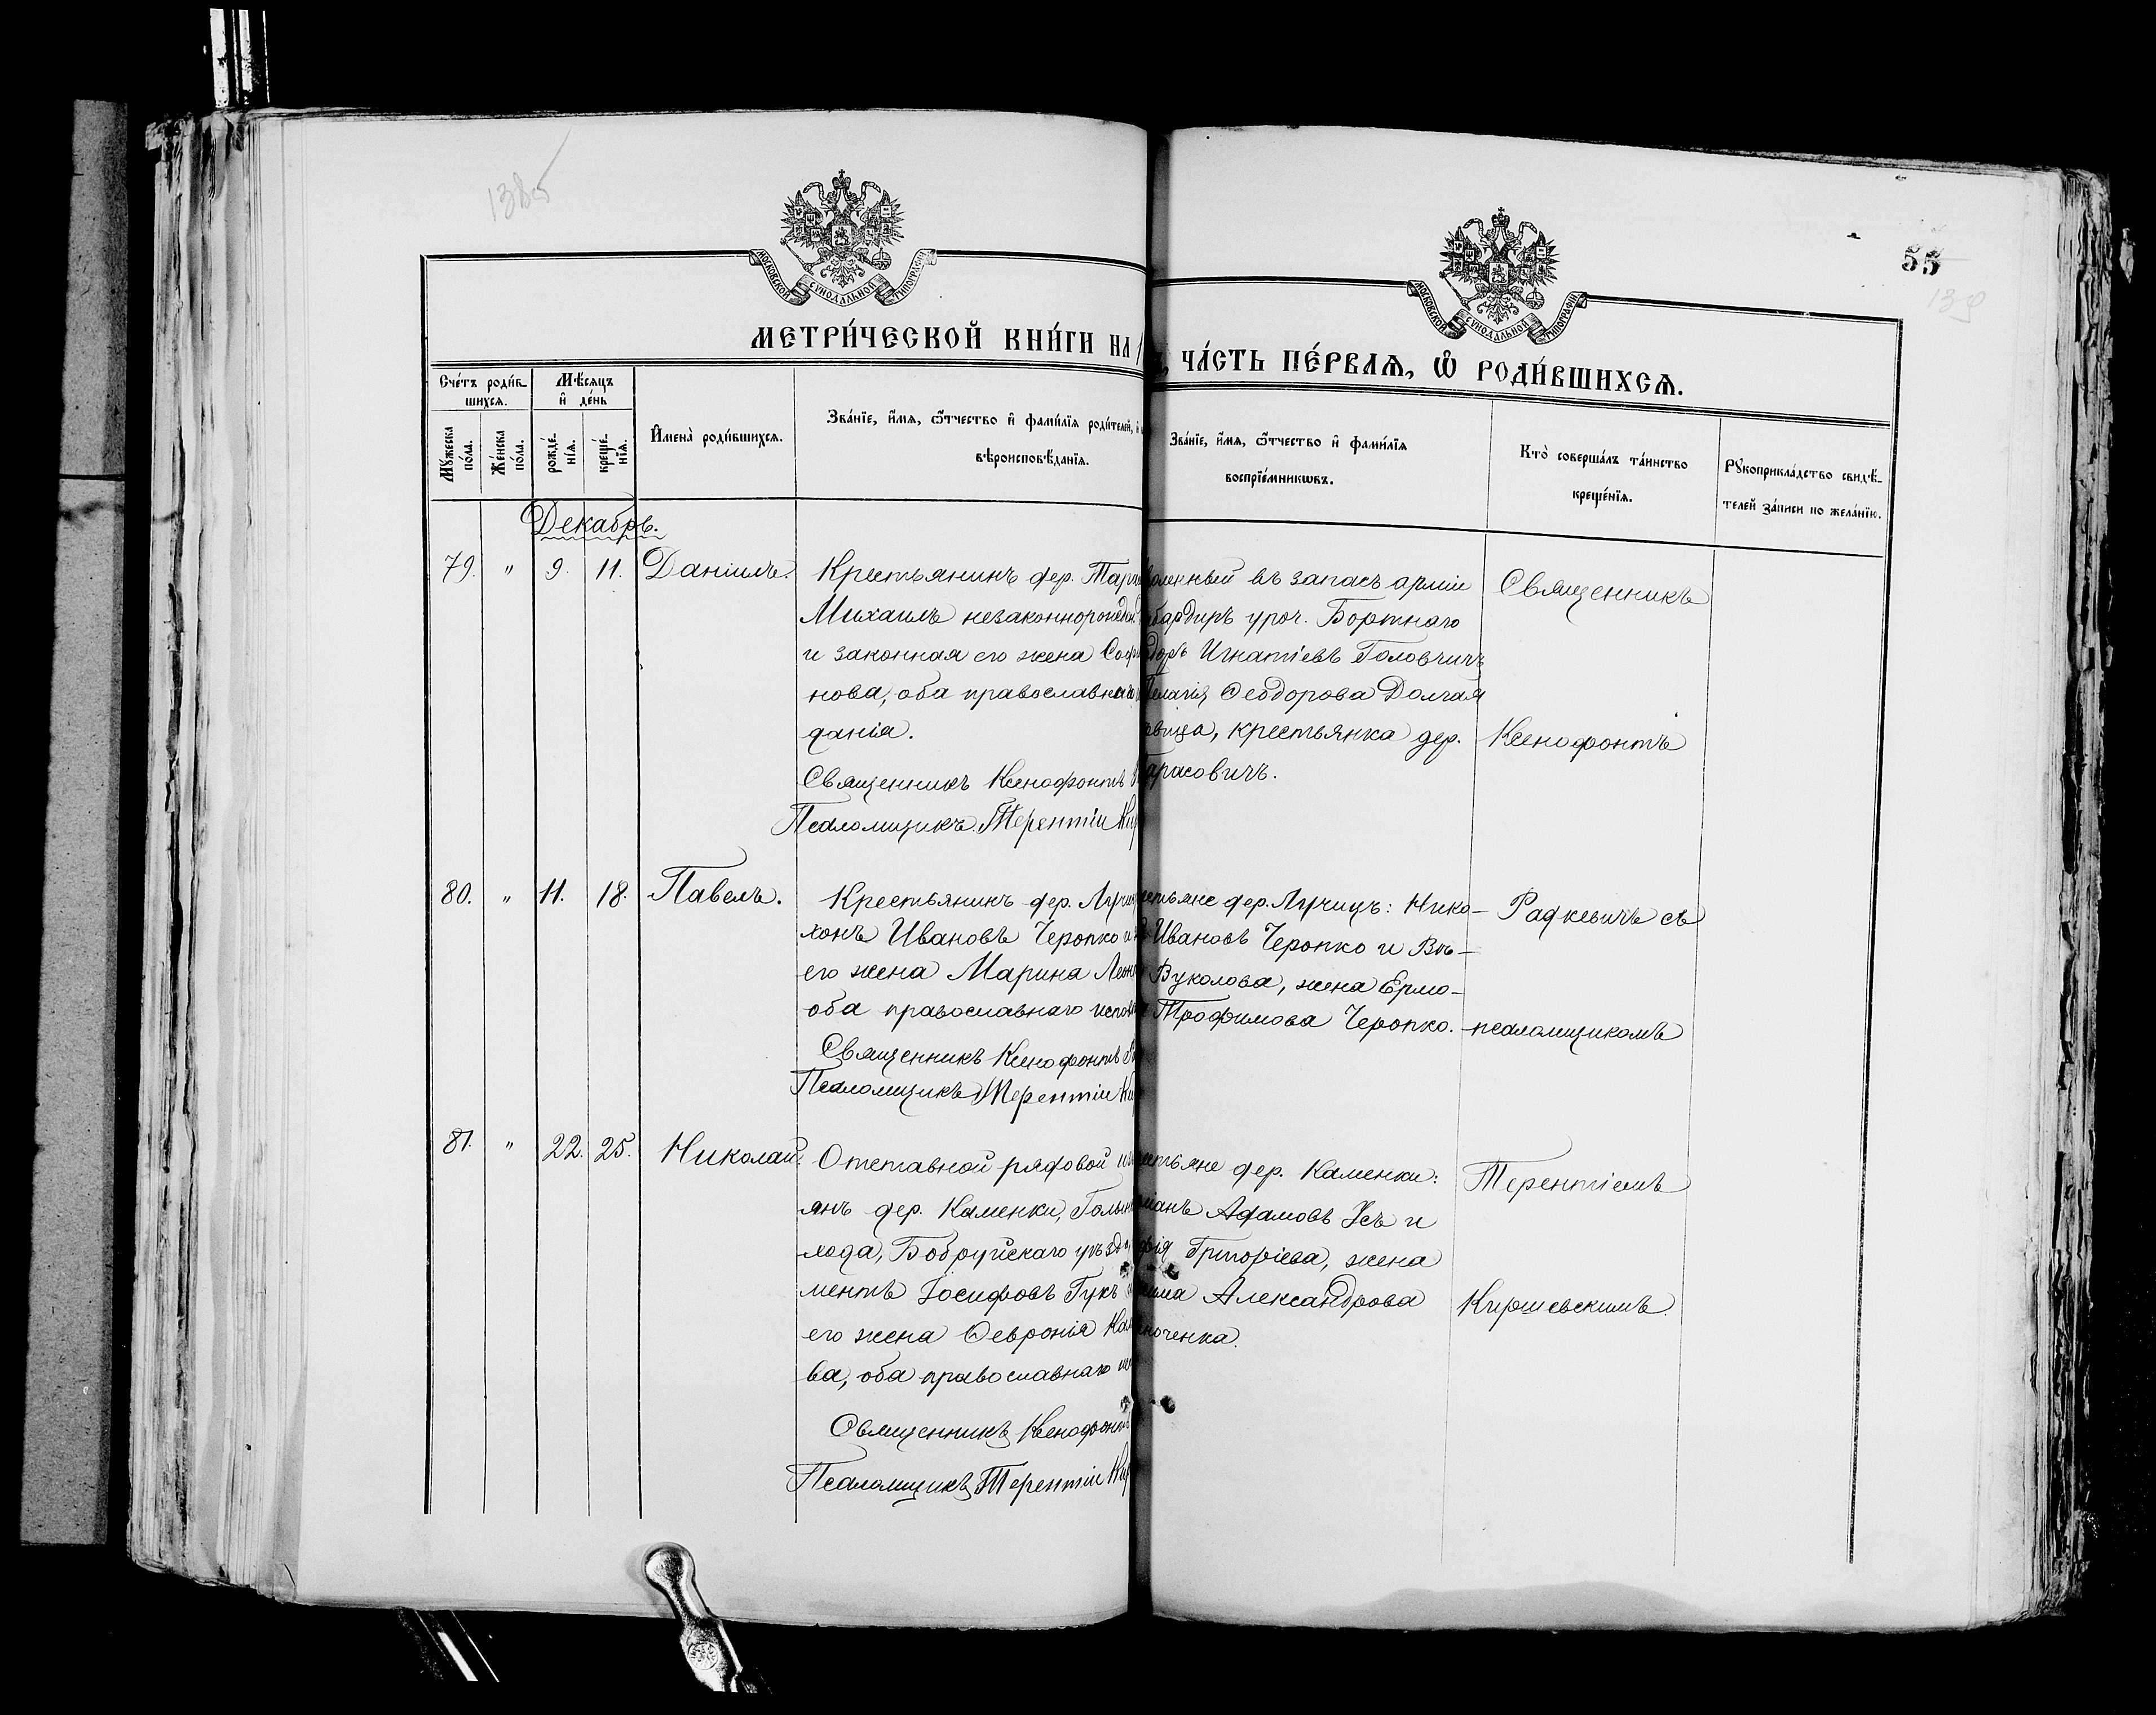 1385
55
139
МОСКОВСКОЙ СѴНОДАЛЬНОЙ ТИПОГРАФІИ
МОСКОВСКОЙ СѴНОДАЛЬНОЙ ТИПОГРАФІИ
МЕТРИ́ЧЕСКОЙ КНИ́ГИ НА 1
ЧА́СТЬ ПЕ́РВАѦ, Ѿ РОДИ́ВШИХСѦ.
Сче́тъ роди́в-
шихсѧ.
Мѣ́сѧцъ
и҆ де́нь
Мꙋ́жеска
по́ла.
Же́нска
по́ла.
рожде́-
нїѧ.
креще́-
нїѧ.
И҆мена̀ роди́вшихсѧ.
Зва́нїе, и҆́мѧ, ѻ҆́тчество и҆ фами́лїѧ роди́телей, и҆
вѣроисповѣ́данїѧ.
Зва́нїе, и҆́мѧ, ѻ҆́тчество и҆ фами́лїѧ
воспрїе́мникѡвъ.
Кто̀ соверша́лъ та́инство
креще́нїѧ.
Рꙋкоприкла́дство свидѣ́-
телей за́писи по жела́нїю.
Декабрь.
79. " 9. 11. Даніилъ.
Крестьянинъ дер.
Михаилъ незаконнорожден
и законная его жена Соф
нова, оба православнаго
данія.
Священникъ Ксенофонтъ
Псаломщикъ Терентій Кир
воленный въ запасъ арміи
бардиръ уроч. Бортнаго
доръ Игнатіевъ Головчичъ
Пелагія Ѳеодорова Долгая
овица, крестьянка дер.
Тарасовичъ.
Священникъ
Ксенофонтъ
80. " 11. 18. Павелъ.
Крестьянинъ дер. Лучи
хонъ Ивановъ Черопко и
его жена Марина Леон
оба православнаго испов
Священникъ Ксенофонтъ
Псаломщикъ Терентій Ки
стьяне дер. Лучицъ: Нико-
Ивановъ Черопко и Въ-
Вуколова, жена Ермо-
Трофимова Черопко.
Радкевичъ съ
псаломщикомъ
81. " 22. 25. Николай.
Отставной рядовой из
янъ дер. Каменки,
хода, Бобруйскаго уѣзда,
ментъ Іосифовъ Гукъ
его жена Ѳевронія
ва, оба православнаго
Священникъ Ксенофонт
Псаломщикъ Терентій Кир
стьяне дер. Каменки:
Адамовъ Усъ и
фія Григоріева, жена
сима Александрова
ноченка.
Терентіемъ
Киршевскимъ.